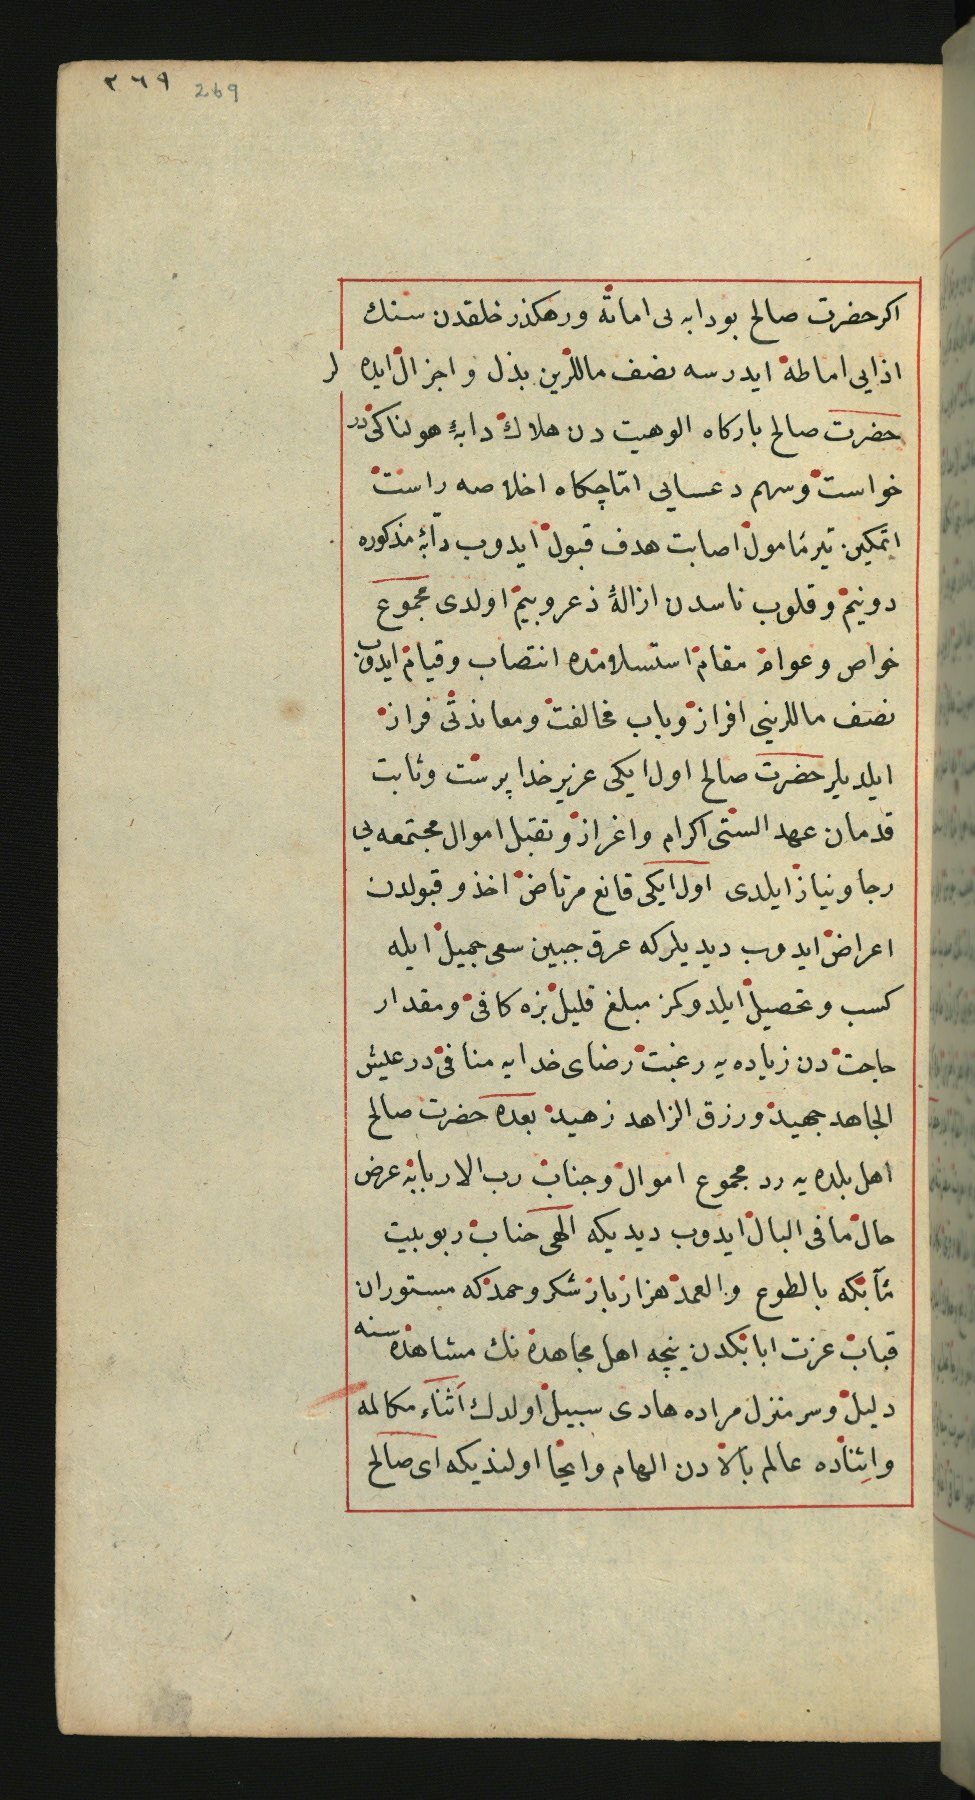 ٢٦٩ 269
اكر حضرت صالح بو دابه يى اماتة و رهكذر خلقدن سنك
اذايى اماطة ايدرسه نصف ماللرين بذل و اجزال ايده لر
حضرت صالح باركاه الوهيت دن هلاك دابۀ هولناكى در
خواست و سهم دعسايى اماجكاه اخلاصه راست
اتمكين تير مأمول اصابت هدف قبول ايدوب دابۀ مذكوره
دونيم و قلوب ناسدن ازالۀ ذعر و بيم اولدى مجموع
خواص و عوام مقام استسلامده انتصاب و قيام ايدوب
نصف ماللرينى افراز و باب مخالفت و معاندتى فراز
ايلديلر حضرت صالح اول ايكى عزيز خدا پرست و ثابت
قدمان عهد الستى اكرام و اغراز و تقبل اموال مجتمعه يى
رجا و نياز ايلدى اول ايكى قانع مرتاض اخذ و قبولدن
اعراض ايدوب ديديلر كه عرق جبين سعى جميل ايله
كسب و تحصيل ايلدوكمز مبلغ قليل بزه كافى و مقدار
حاجت دن زياده يه رغبت رضاى خدايه منافى در عيش
الجاهد جهيد و رزق الزاهد زهيد بعده حضرت صالح
اهل بلده يه رد مجموع اموال و جناب رب الاربابه عرض
حال ما فى البال ايدوب ديديكه الهى جناب ربوبيت
مآبكه بالطوع و العمد هزار بار شكر و حمد كه مستوران
قباب عزت ابابكدن نيچه اهل مجاهده نك مشاهده سنه
دليل و سر منزل مراده هادى سبيل اولدك اثناء مكالمه
و اثناده عالم بالا دن الهام و ايحا اولنديكه اى صالح